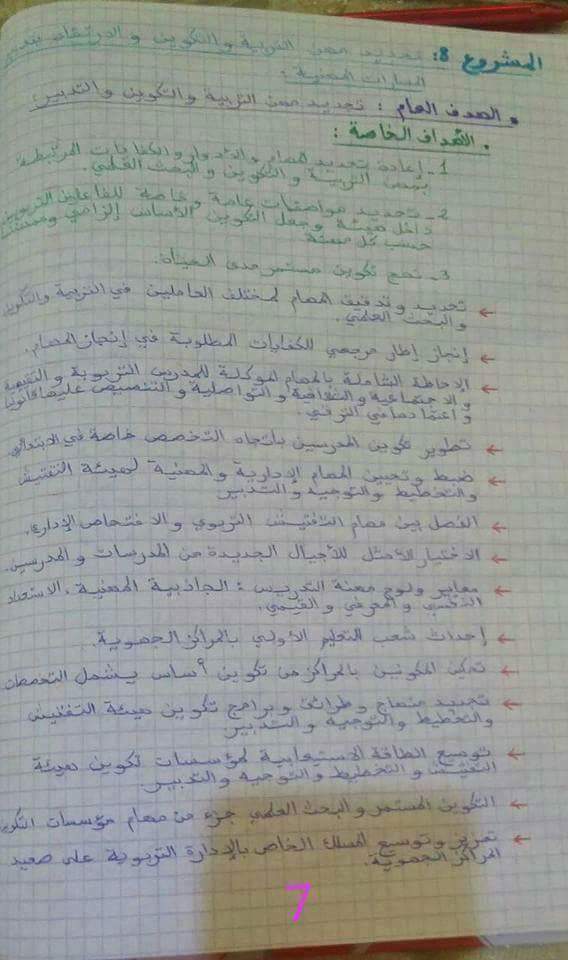 المشروع 8: تجديد مهن التربية والتكوين والارتقاء بتدبير
المسارات المهنية:
• الهدف العام: تجديد مهن التربية والتكوين والتدبير.
• الأهداف الخاصة:
1- إعادة تحديد المهام والأدوار والكفايات المرتبطة
بمهن التربية والتكوين والبحث العلمي.
2- تحديد مواصفات عامة وخاصة للفاعلين التربويين
داخل هيئة وجعل التكوين الأساس إلزامي
حسب كل مهنة
3- نهج تكوين مستمر مدى الحياة.
← تحديد وتدقيق المهام لمختلف العاملين في التربية والتكوين
والبحث العلمي.
← إنجاز إطار مرجعي للكفايات المطلوبة في إنجاز المهام.
← الإحاطة الشاملة بالمهام الموكلة للمدرس التربوية والتقييمية
والاجتماعية والثقافية والتواصلية والتنصيص عليها قانونيا
واعتمادها في الترقي.
← تطوير تكوين المدرسين باتجاه التخصص خاصة في الابتدائي
← ضبط وتحيين المهام الإدارية والمهنية لهيئة التفتيش
والتخطيط والتوجيه والتدبير
← الفصل بين مهام التفتيش التربوي والافتحاص الإداري.
← الاختيار الأمثل للأجيال الجديدة من المدرسات والمدرسين.
← معايير ولوج مهنة التدريس: الجاذبية المهنية، الاستعداد
النفسي والمعرفي والقيمي.
← إحداث شعب التعليم الأولي بالمراكز الجهوية.
← تمكن المكونين بالمراكز من تكوين أساس يشمل التخصصات
← تجديد منهاج وطرائق وبرامج تكوين هيئة التفتيش
والتخطيط والتوجيه والتدبير
← توسيع الطاقة الاستيعابية لمؤسسات تكوين هيئة
التفتيش والتخطيط والتوجيه والتدبير.
← التكوين المستمر والبحث العلمي جزء من مهام مؤسسات التكوين
← تعزيز وتوسيع المسلك الخاص بالإدارة التربوية على صعيد
المراكز الجهوية.
7